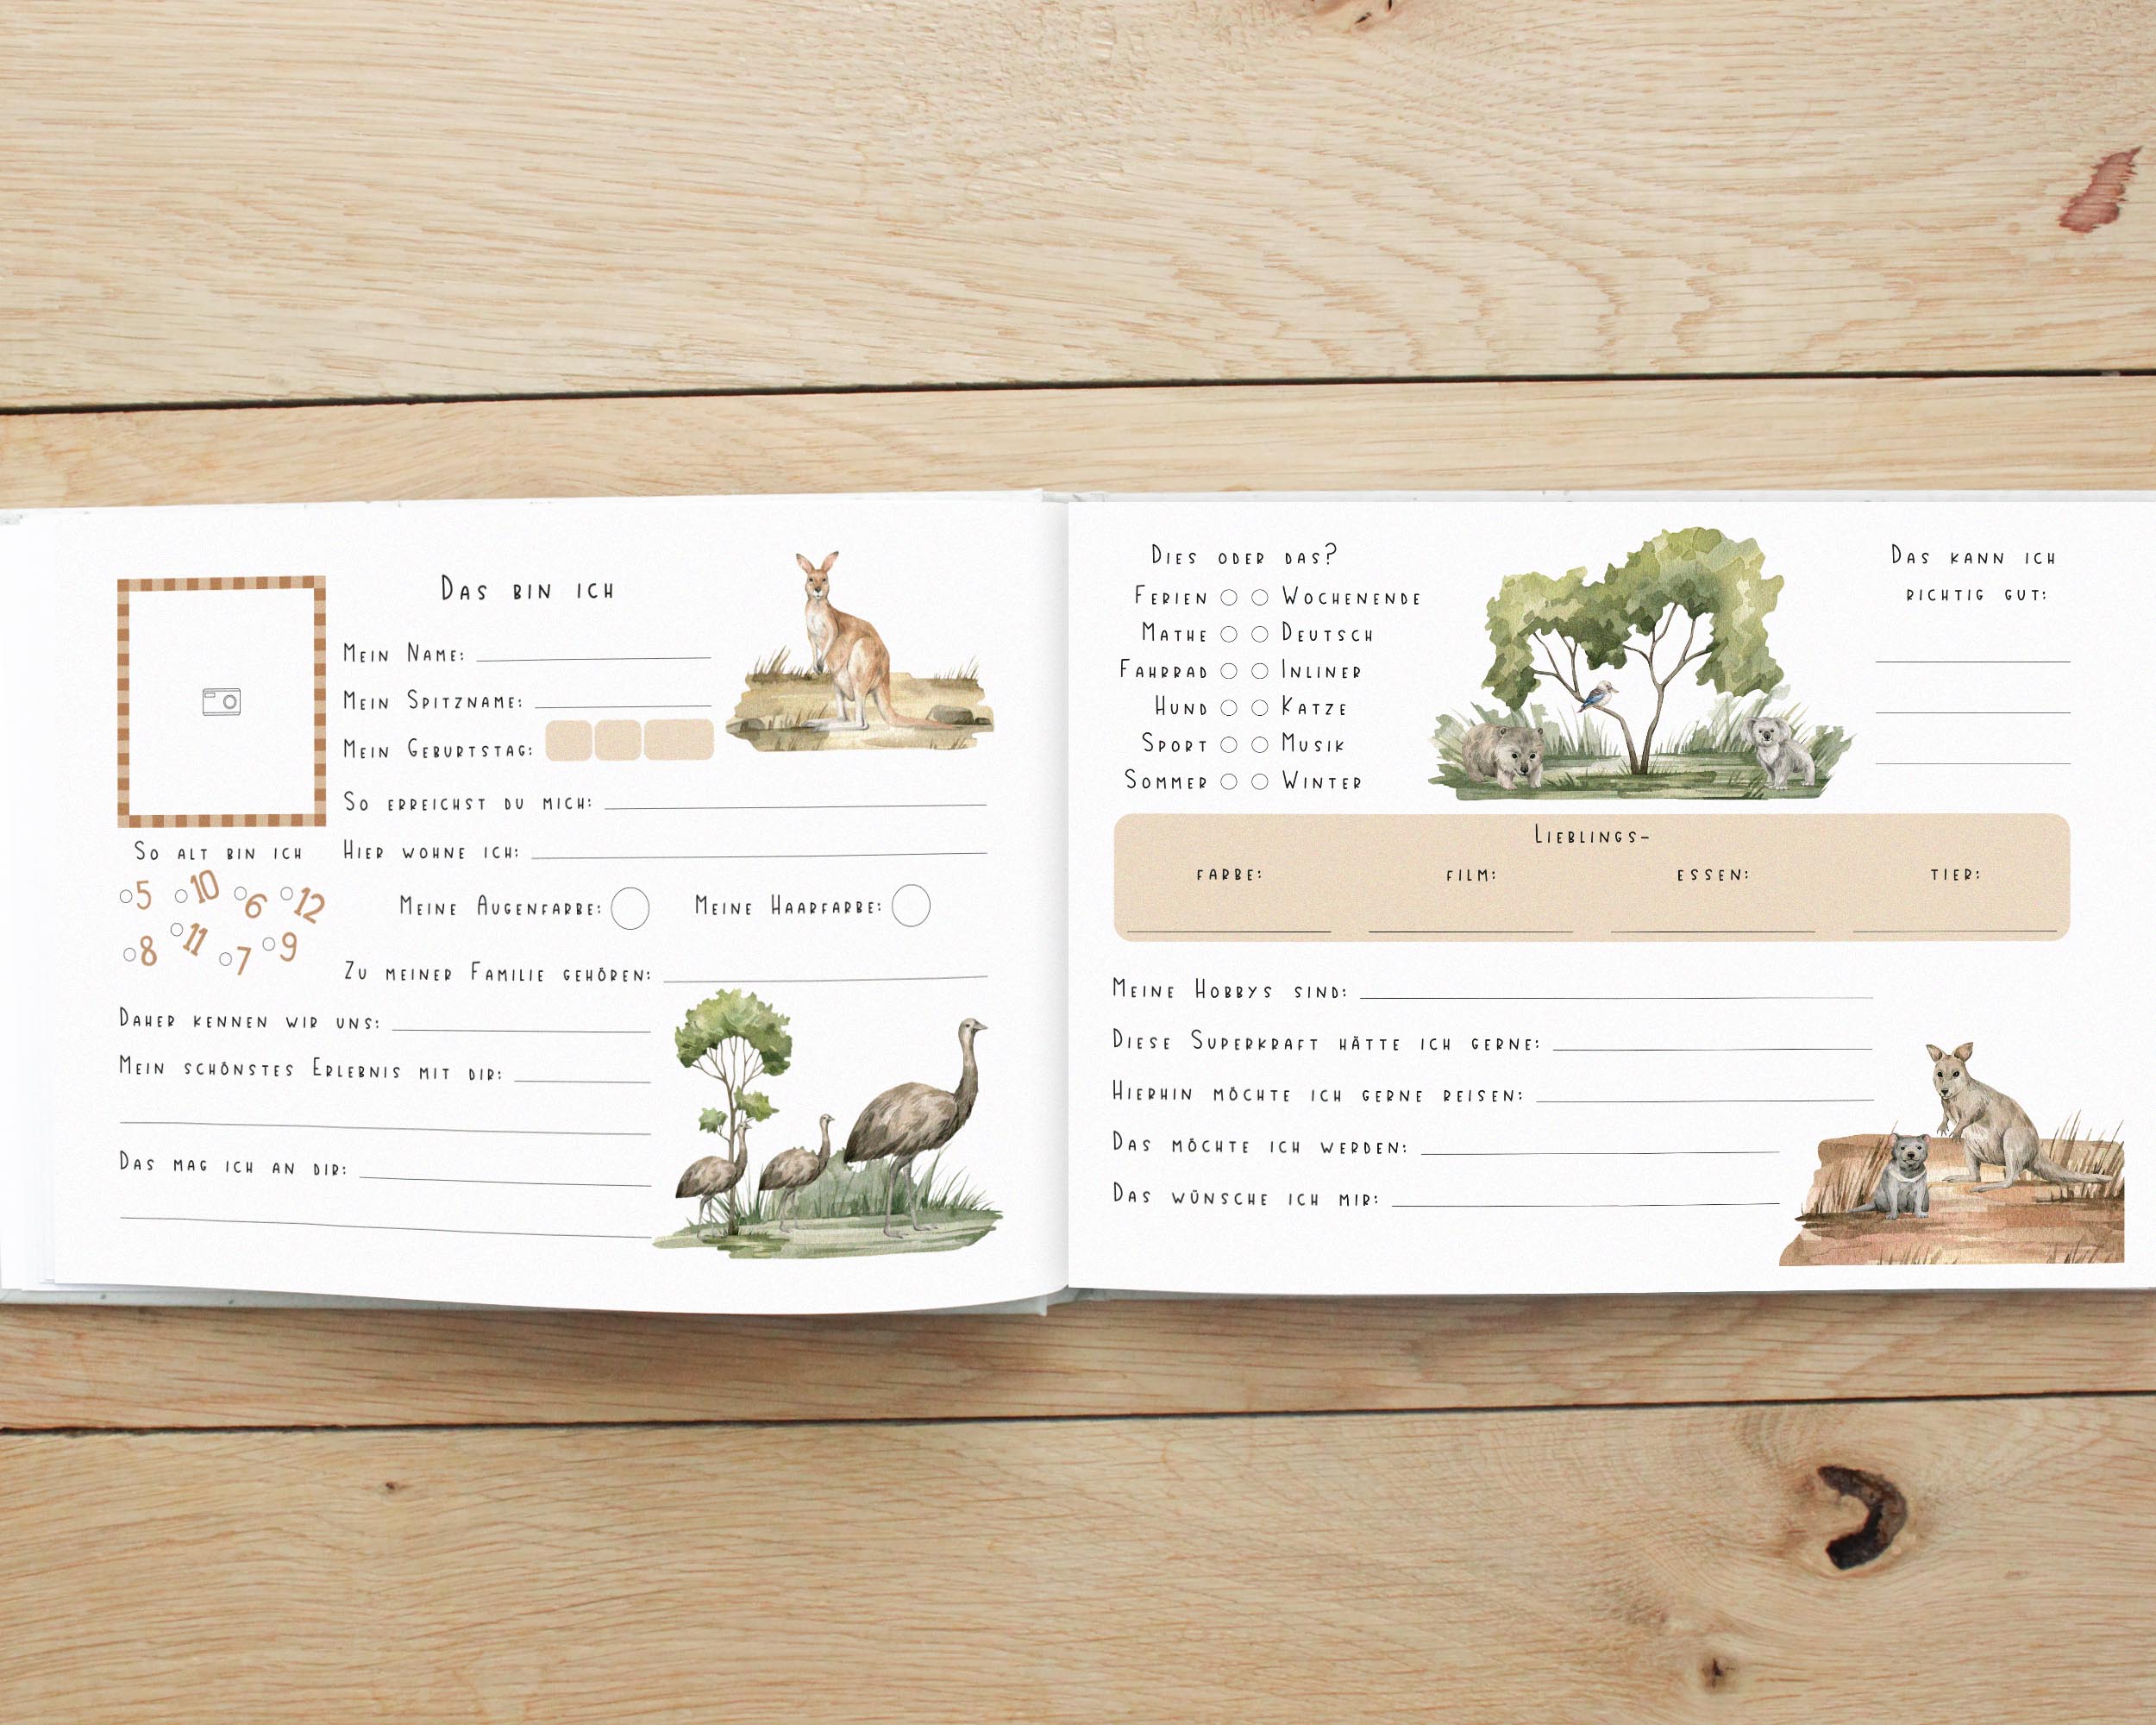 Das bin ich
Mein Name:
Mein Spitzname:
Mein Geburtstag:
So erreichst du mich:
So alt bin ich
Hier wohne ich:
5 10 6 12
8 11 7 9
Meine Augenfarbe: Meine Haarfarbe:
Zu meiner Familie gehören:
Daher kennen wir uns:
Mein schönstes Erlebnis mit dir:
Das mag ich an dir:
Dies oder das?
Ferien Wochenende
Mathe Deutsch
Fahrrad Inliner
Hund Katze
Sport Musik
Sommer Winter
Das kann ich
richtig gut:
Lieblings-
Farbe: Film: Essen: Tier:
Meine Hobbys sind:
Diese Superkraft hätte ich gerne:
Hierhin möchte ich gerne reisen:
Das möchte ich werden:
Das wünsche ich mir: